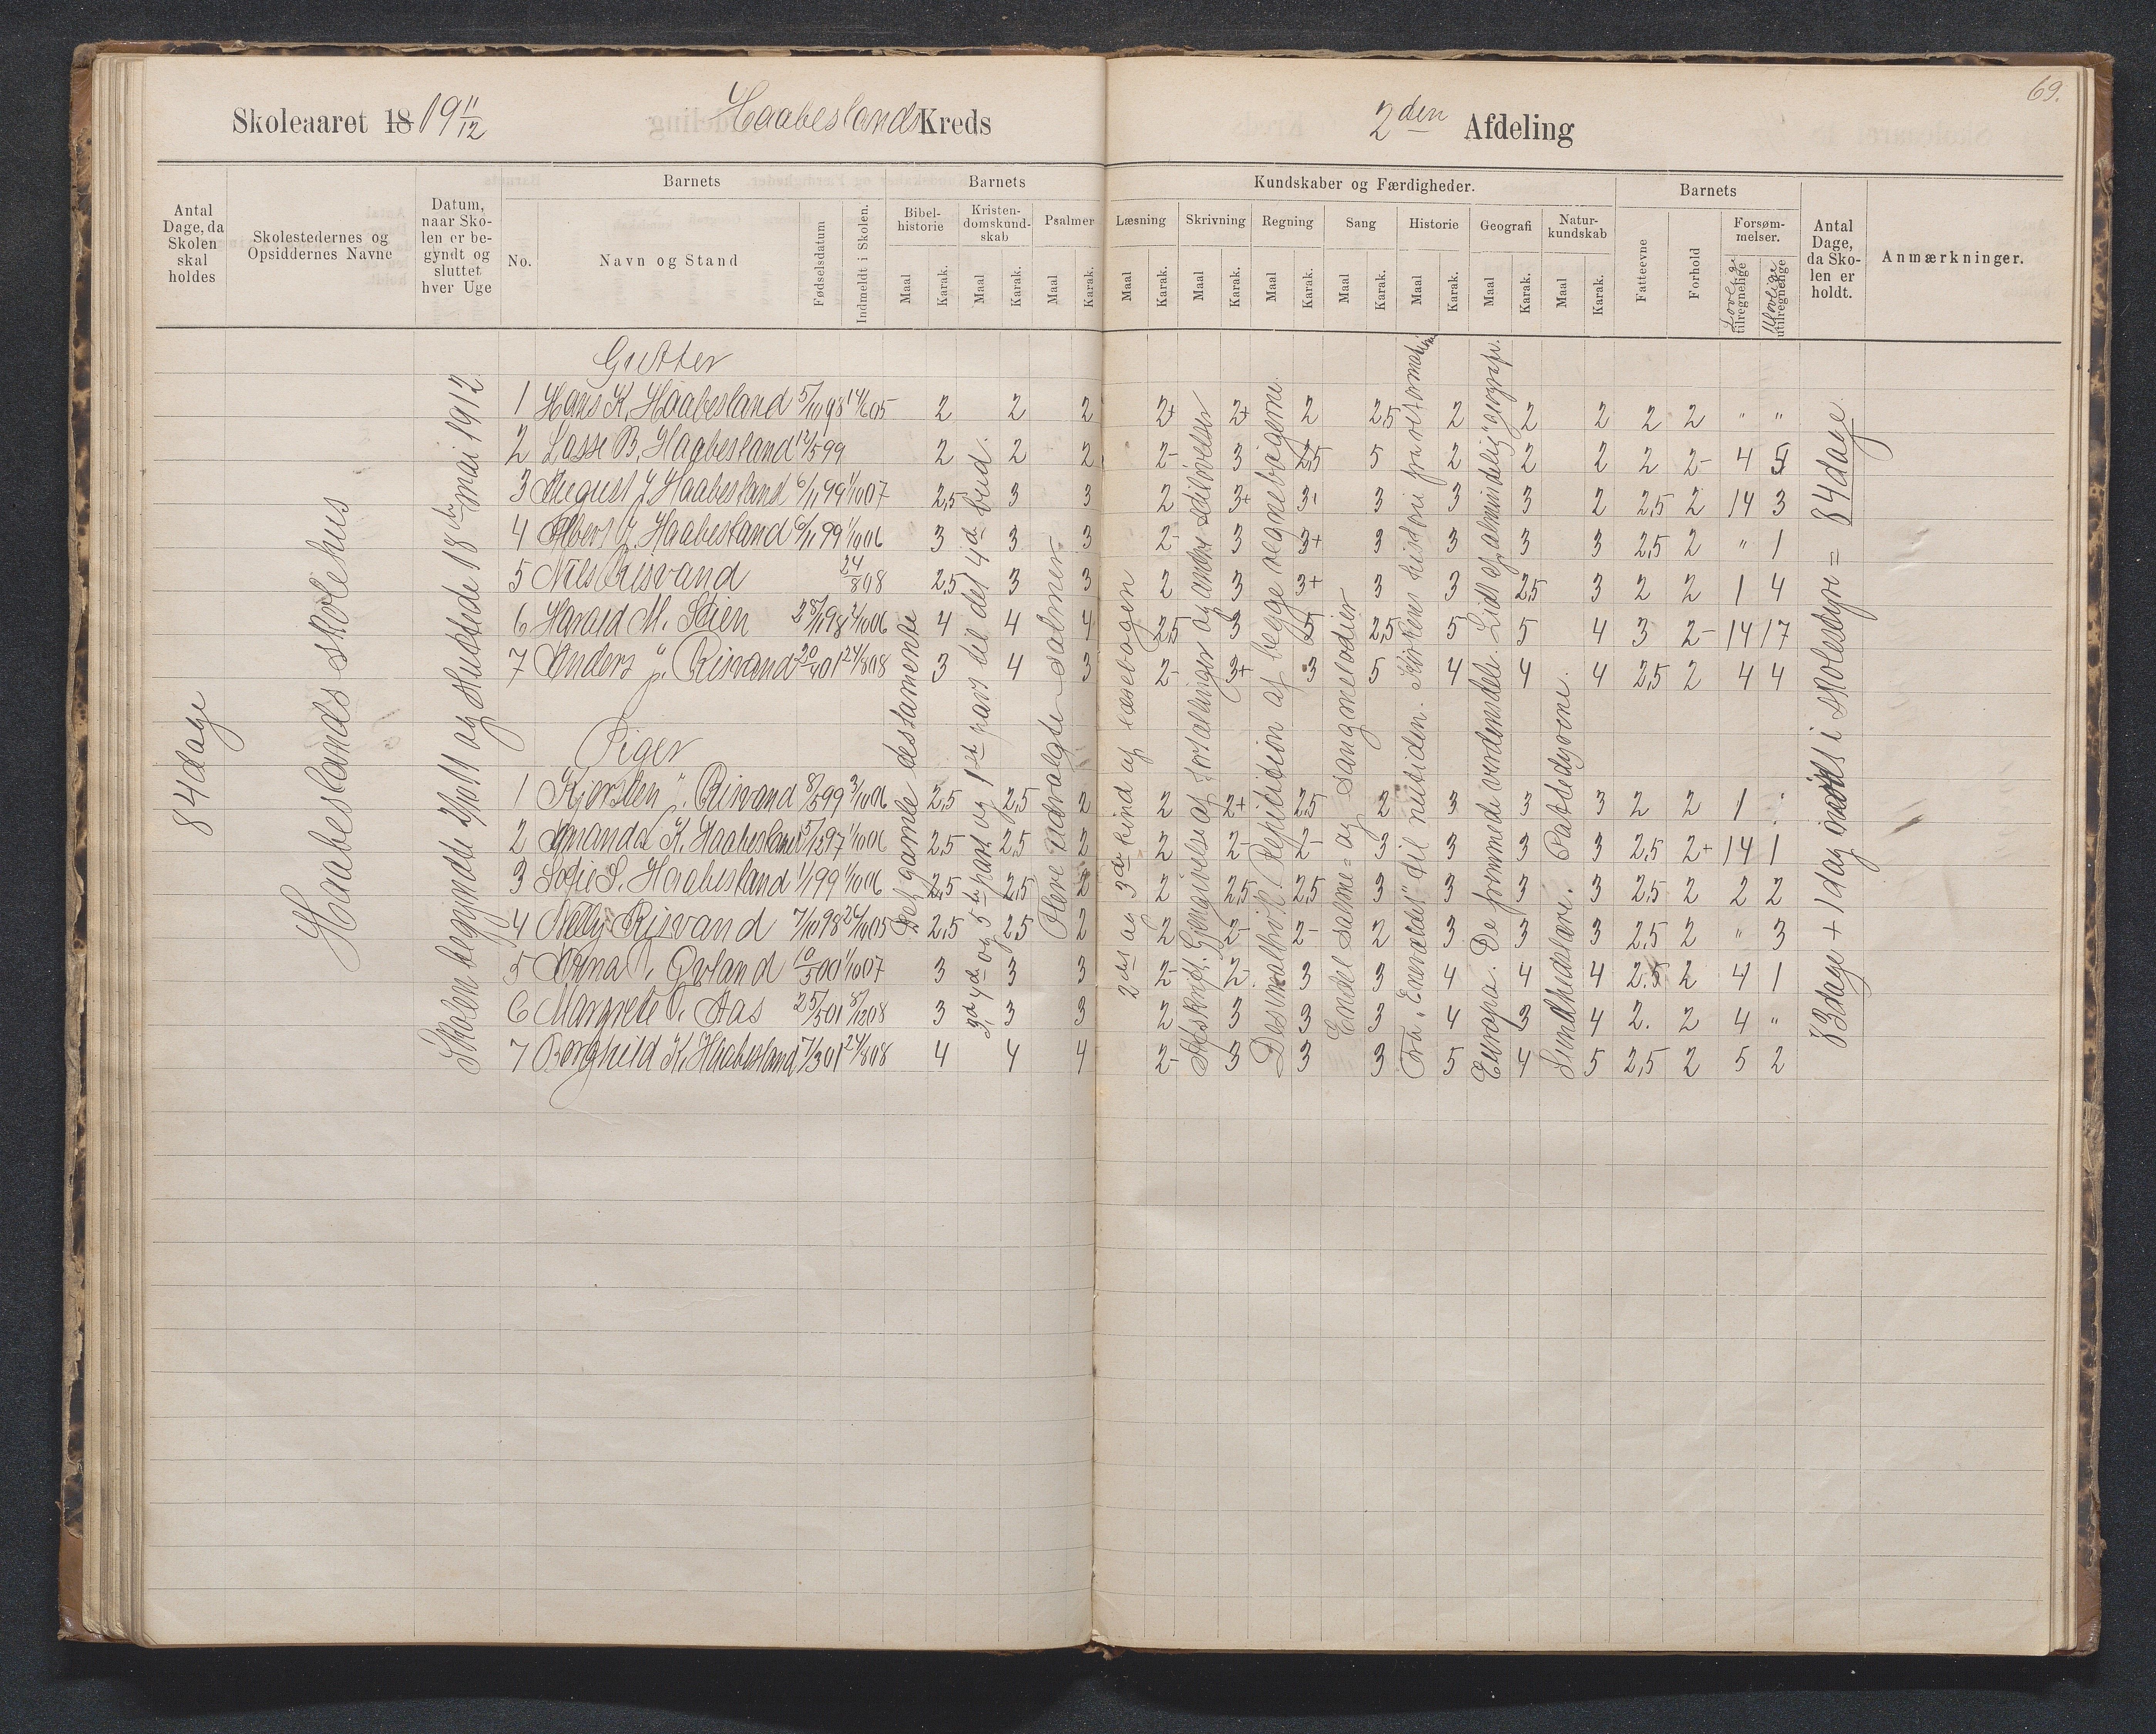 69.
Skoleaaret 18 19 11/12 Haabeslands Kreds 2den Afdeling
Antal Dage, da Skolen skal holdes
Skolestedernes og Opsiddernes Navne
Datum, naar Skolen er begyndt og sluttet hver Uge
Barnets
No.
Navn og Stand
Fødselsdatum
Indmeldt i Skolen.
Barnets
Bibelhistorie
Kristendomskundskab
Psalmer
Maal Karak. Maal Karak. Maal Karak.
Kundskaber og Færdigheder.
Læsning Skrivning Regning Sang Historie Geografi Naturkundskab
Maal Karak. Maal Karak. Maal Karak. Maal Karak. Maal Karak. Maal Karak. Maal Karak.
Barnets
Fatteevne
Forhold
Forsømmelser.
Lovlige tilregnelige
Ulovlige utilregnelige
Antal Dage, da Skolen er holdt.
Anmærkninger.
84 dage
Haabeslands skolehus
Skolen begyndte 2/10 11 og sluttede 18de mai 1912
Gutter
1 Hans K. Haabesland 5/10 98 14/6 05 2 2 2 2+ 2+ 2 2,5 2 2 2 2 2 " "
2 Lasse B. Haabesland 12/5 99 2 2 2 2- 3 2,5 5 2 2 2 2 2- 4 5
3 August J. Haabesland 6/11 99 1/10 07 2,5 3 3 2 3+ 3+ 3 3 3 2 2,5 2 14 3
4 Albert J. Haabesland 6/11 99 1/10 06 3 3 3 2- 3 3+ 3 3 3 3 2,5 2 " 1
5 Nils Risvand 24/8 08 2,5 3 3 2 3 3+ 3 3 2,5 3 2 2 1 4
6 Harald M. Stien 28/11 98 2/10 06 4 4 4 2,5 3 5 2,5 5 5 4 3 2- 14 17
7 Anders J. Risvand 20/4 01 24/8 08 3 4 3 2- 3+ 3 5 4 4 4 2,5 2 4 4
Piger
1 Kjersten J. Risvand 8/5 99 3/10 06 2,5 2,5 2 2 2+ 2,5 2 3 3 3 2 2 1
2 Amanda K. Haabesland 15/5 97 1/10 06 2,5 2,5 2 2 2- 2- 3 3 3 3 2,5 2+ 14 1
3 Sofie S. Haabesland 1/1 99 1/10 06 2,5 2,5 2 2 2,5 2,5 3 3 3 3 2,5 2 2 2
4 Nelly Risvand 7/10 98 26/10 05 2,5 2,5 2 2 2- 2- 2 3 3 3 2,5 2 " 3
5 Anna T. Qvland 10/5 00 1/10 07 3 3 3 2- 2- 3 3 4 4 4 2.5 2 4 1
6 Margrete O. Aas 25/5 01 8/12 08 3 3 3 2 3 3 3 4 3 4 2. 2 4 "
7 Borghild K. Haabesland 7/3 01 24/8 08 4 4 4 2- 3 3 3 5 4 5 2,5 2 5 2
Det gamle testamente
3die, 4de og 5te part og 1ste part til det 4de bud.
Flere udvalgte salmer
2det og 3die bind af læsebogen
Afskrift. Gjengivelse af fortællinger og andre stiløvelser
Desimalbrøk. Repitition af begge regnebøgerne.
Endel salme- og sangmelodier
Fra "Enevældet" til nutiden. Kirkens historie fra reformationen.
Europa. De fremmede verdensdele. Lidt af "almindelig" geografi.
Sundhedslære. Pattedyrene.
83 dage + 1 dag i skolestyr = 84 dage